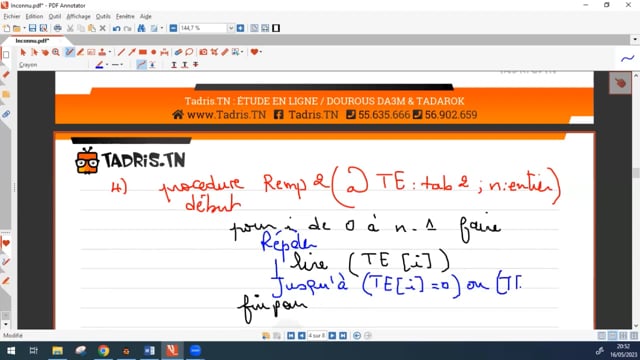 inconnu.pdf* - PDF Annotator
Fichier Edition Affichage Outils Fenêtre Aide
144,7 %
inconnu.pdf*
Crayon
Tadris.TN : ÉTUDE EN LIGNE / DOUROUS DA3M & TADAROK
www.Tadris.TN Tadris.TN 55.635.666 56.902.659
TADRIS.TN
4) procédure Remp2 (@ TE : tab2 ; n : entier)
début
pour i de 0 à n-1 faire
Répéter
lire (TE [i])
Jusqu'à (TE[i] = 0) ou (T
fin pour
Modifié
4 sur 8
20:52
16/05/2023